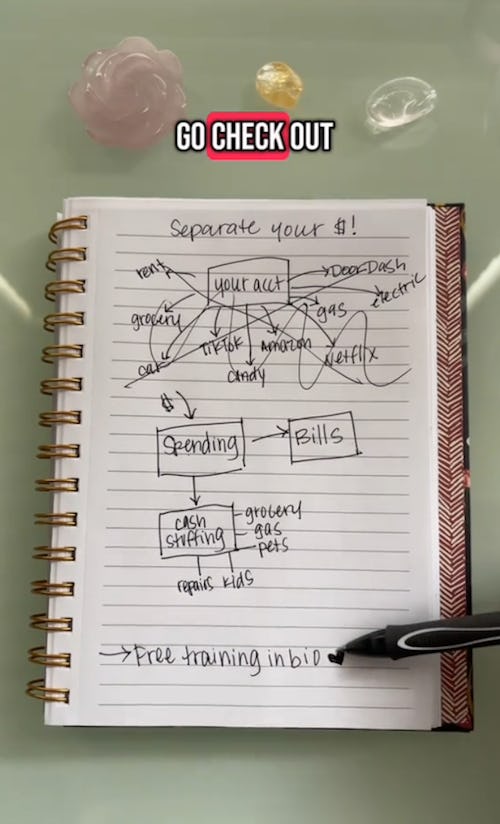 GO CHECK OUT
Separate your $!
rent
your acct
DoorDash
electric
grocery
gas
car
TikTok
Amazon
Netflix
candy
$
Spending
Bills
cash
stuffing
grocery
gas
pets
repairs kids
→Free training in bio